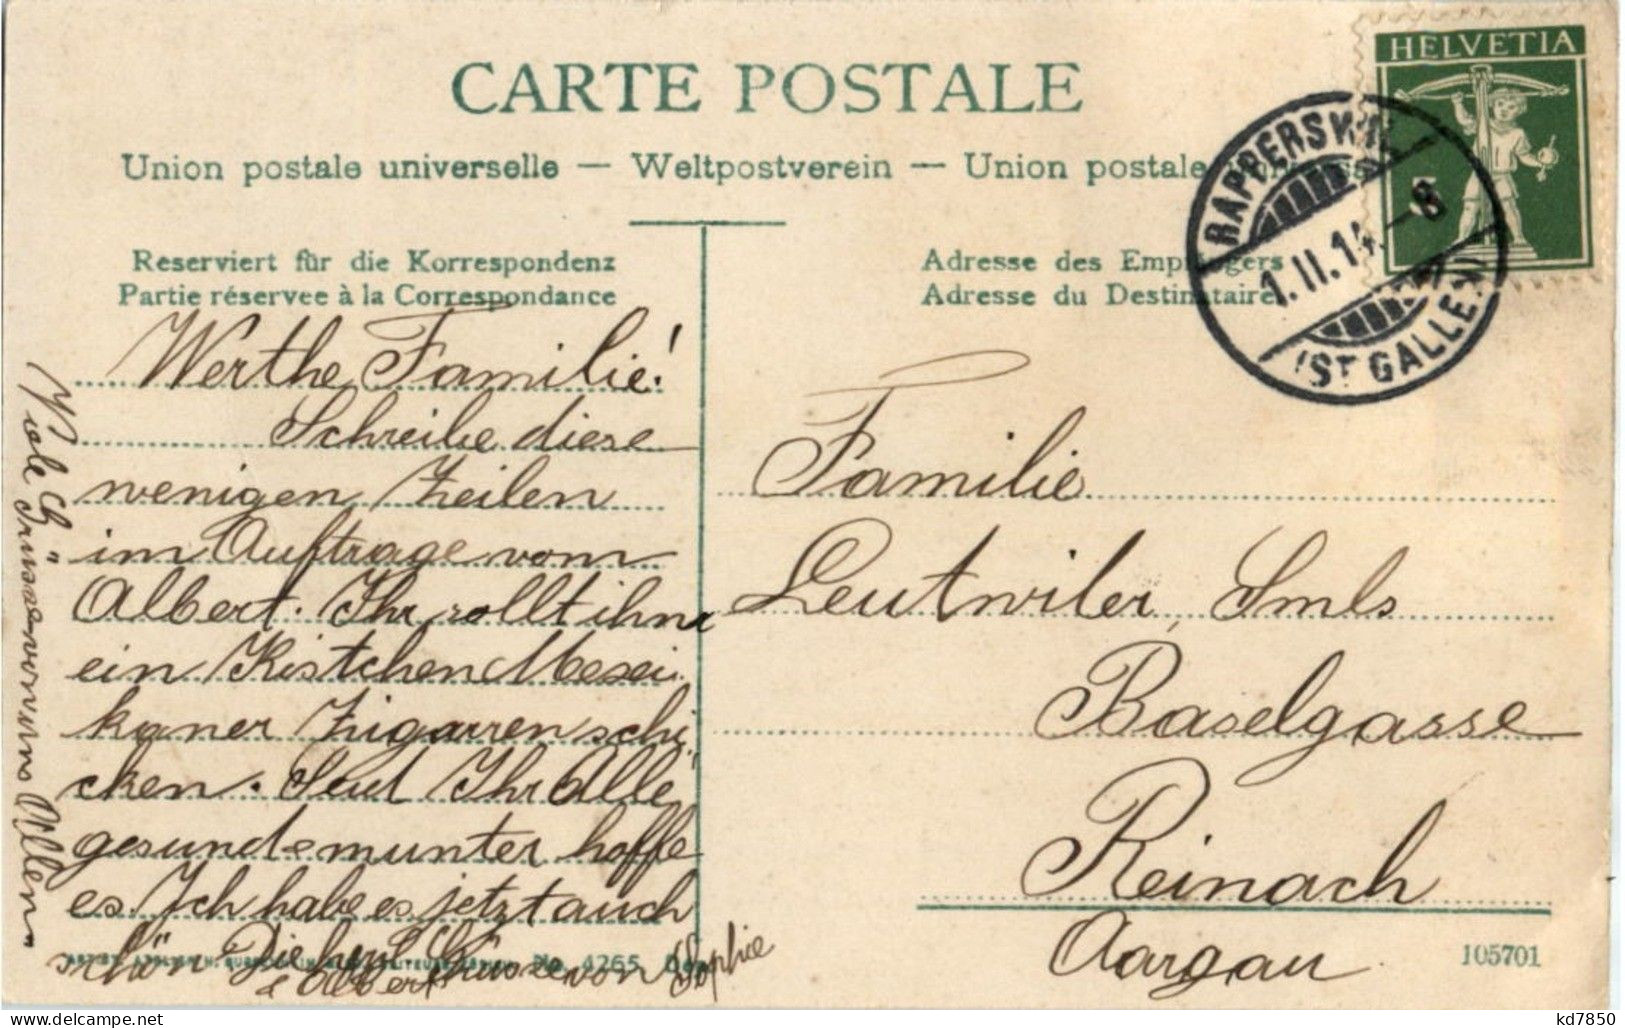 CARTE POSTALE
Union postale universelle — Weltpostverein — Union postale
HELVETIA
5
RAPPERSWIL
1.II.14.-8
(ST GALLEN)
Reserviert für die Korrespondenz
Partie réservee à la Correspondance
Adresse des Empfängers
Adresse du Destinataire
Werthe Familie!
Schreibe diese
wenigen Zeilen
im Auftrage vom
Albert. Ihr sollt ihm
ein Kistchen Mexei
kaner Zigarren schi
cken. Seid Ihr Alle
gesund & munter hoffe
es. Ich habe es jetzt auch
schön Die Grüsse von Sophie
& Albert
Viele Grüsse von Allen
Familie
Leutwiler, Smls
Baselgasse
Reinach
Aargau
No. 4265
105701
kd7850